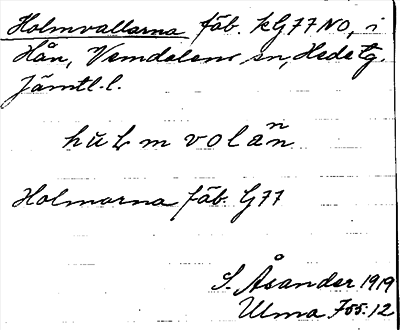 Holmvallarna fäb. kG77NO, i
Hån, Vemdalens sn, Hede tg.
Jämtl. l.
hu̇Lmvolän
Holmarna fäb. G77
S. Åsander 1919
Ulma 755:12